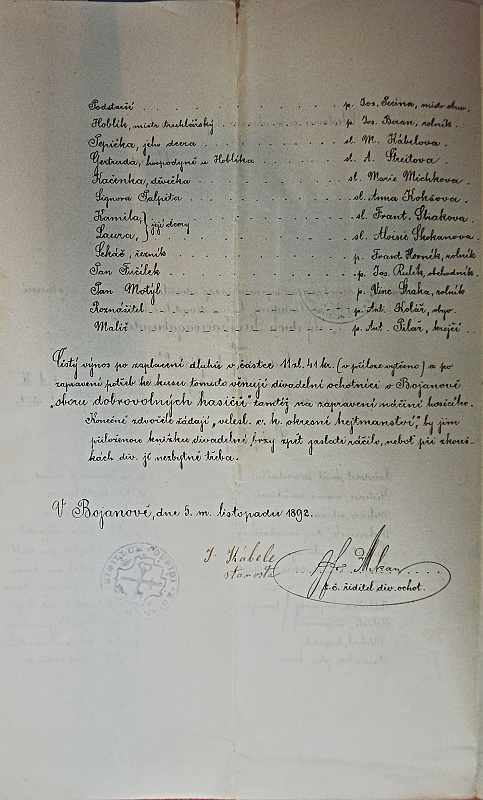 Podstarší . . . . . . . . . . p. Jos. Pecina, mistr obuv.
Hoblík, mistr truhlářský . . . . . . . p. Jos. Beran, rolník.
Pepička, jeho dcera . . . . . . . sl. M. Kábelova.
Gertruda, hospodyně u Hoblíka . . . . . . sl. A. Štreitova.
Kačenka, divička . . . . . . . . sl. Marie Michkova.
Signora Palpita . . . . . . . . sl. Anna Kokšova.
Kamila, } její dcery . . . . . . . sl. Frant. Strakova.
Laura, } . . . . . . . sl. Aloisie Skokanova.
Sekáč, řezník . . . . . . . . p. Frant. Horník, rolník
Pan Fučílek . . . . . . . . p. Jos. Rulík, obchodník.
Pan Motýl . . . . . . . . p. Vinc. Straka, rolník
Roznášitel . . . . . . . . p. Ant. Kolář, obuv.
Malíř . . . . . . . . p. Ant. Pilař, krejčí.
Čistý výnos po zaplacení dluhů v částce 11 zl. 41 kr. (v příloze vytčeno) a po
zapravení potřeb ke kusu tomuto věnují divadelní ochotníci v Bojanově
„sboru dobrovolných hasičů" tamtéž na zapravení náčiní hasícího.
Konečně zdvořile žádají „velesl. c. k. okresní hejtmanství", by jim
přiloženou knížku divadelní brzy zpět zaslati ráčilo, neboť při zkouš-
kách div. jí nezbytně třeba.
V Bojanově, dne 5. m. listopadu 1892.
J. Kábele
starosta
t. č. ředitel div. ochot.